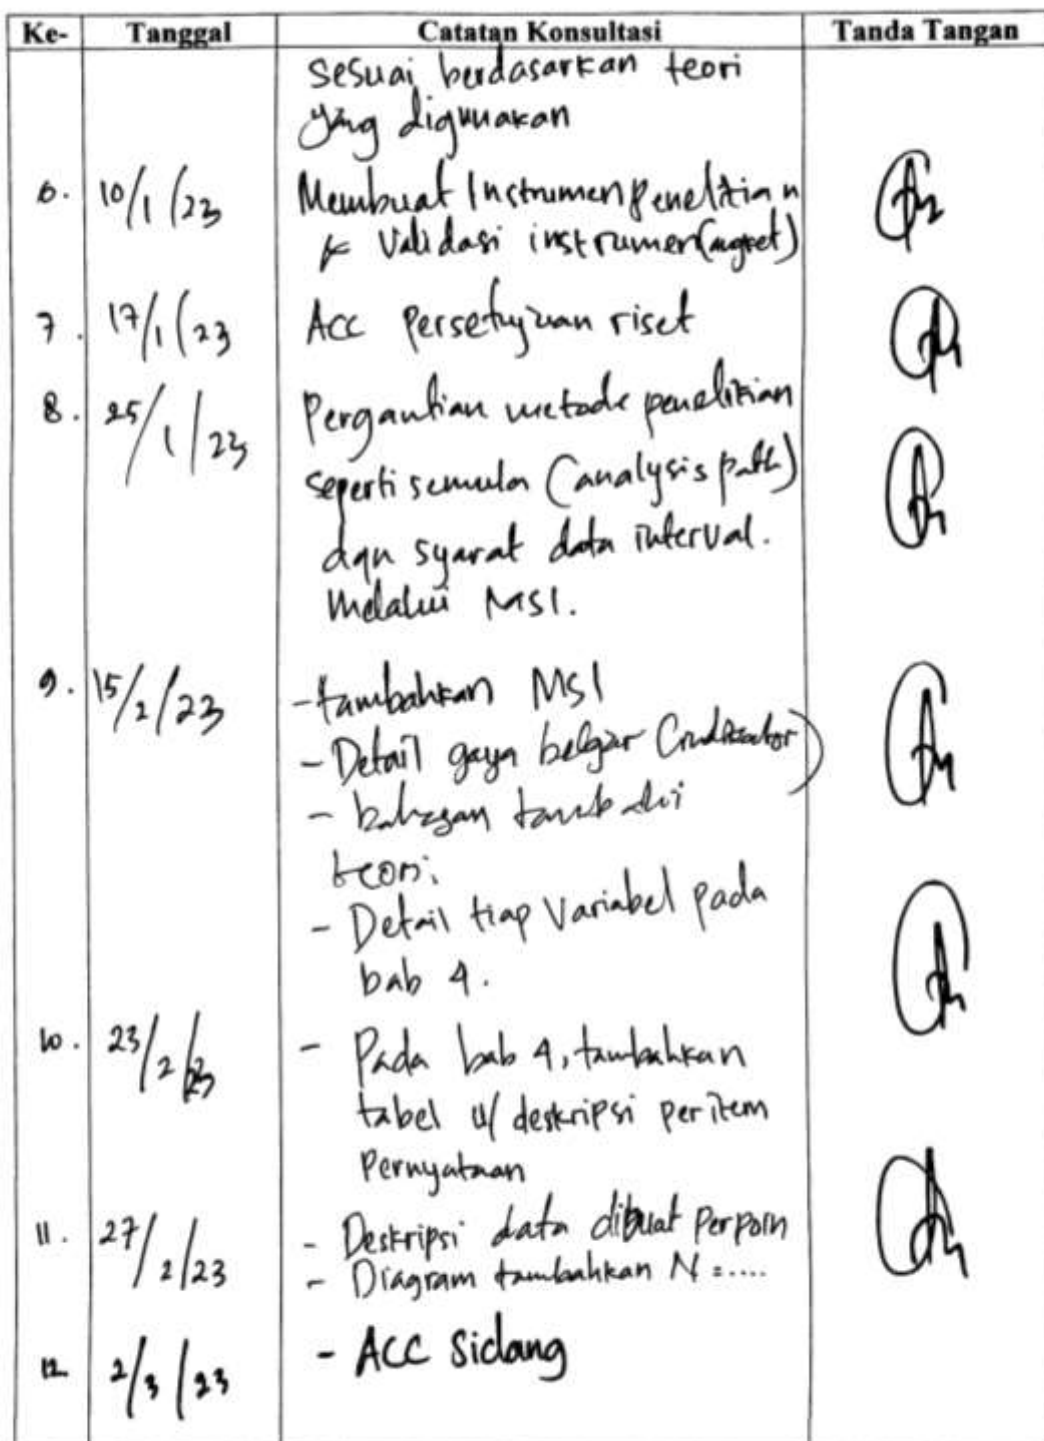 Ke- Tanggal Catatan Konsultasi Tanda Tangan
sesuai berdasarkan teori
yang digunakan
6. 10/1/23 Membuat Instrumen penelitian
& Validasi instrumen (angket)
7. 17/1/23 ACC persetujuan riset
8. 25/1/23 Pergantian metode penelitian
seperti semula (analysis path)
dgn syarat data interval.
melalui MSI.
9. 15/2/23 - tambahkan MSI
- Detail gaya belajar (indikator)
- bahasan
teori.
- Detail tiap Variabel pada
bab 4.
10. 23/2/23 - Pada bab 4, tambahkan
tabel u/ deskripsi per item
Pernyataan
11. 27/2/23 - Deskripsi data dibuat perpoin
- Diagram tambahkan N = .....
12 2/3/23 - ACC Sidang